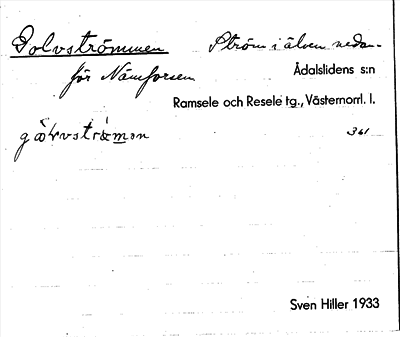 Golvströmmen Ström i älven nedan-
för Nämforsen Ådalslidens s:n
Ramsele och Resele tg., Västernorrl. l.
361
Sven Hiller 1933